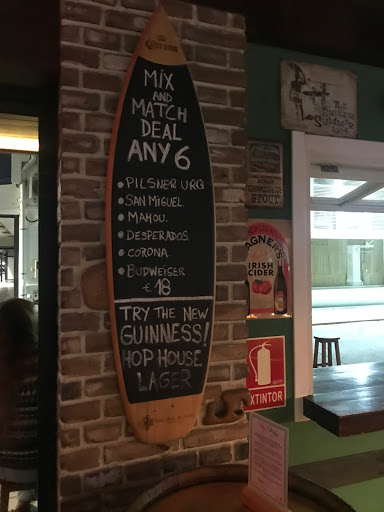 Corona
MIX
AND
MATCH
DEAL
ANY 6
• PILSNER URQ
• SAN MIGUEL.
• MAHOU.
• DESPERADOS.
• CORONA
• BUDWEISER
€ 18
TRY THE NEW
GUINNESS!
HOP HOUSE
LAGER
STOUT
AGNER'S
IRISH
CIDER
EXTINTOR